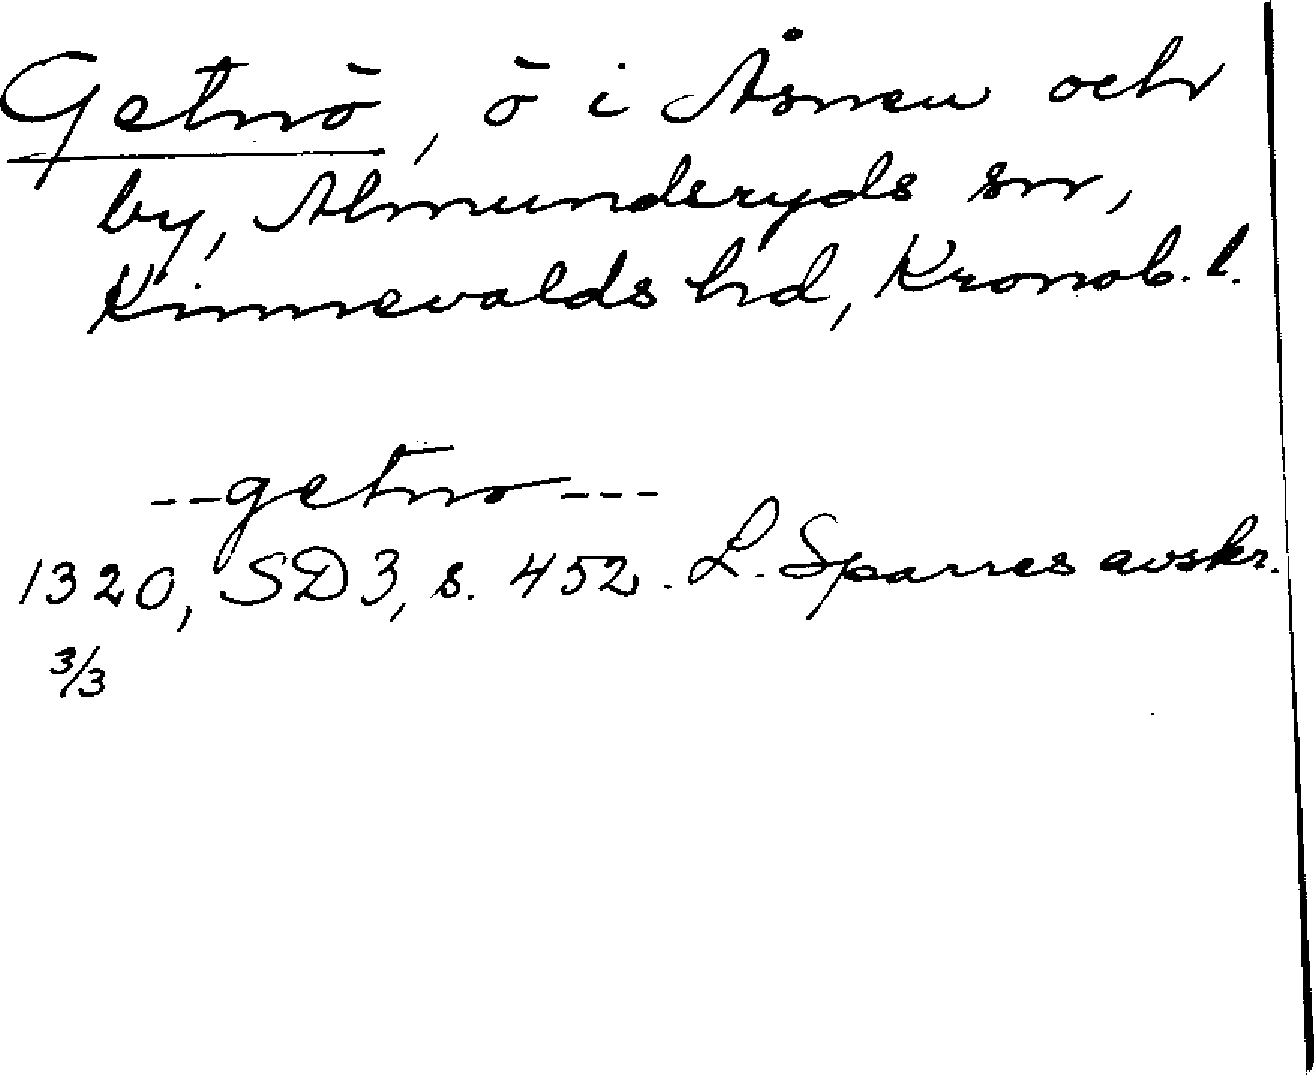 Getnö, ö i Åsnen och
by, Almunderyds sn,
Kinnevalds hd, Kronob. l.
--getno---
1320, SD3, s. 452. L. Sparres avskr.
3/3